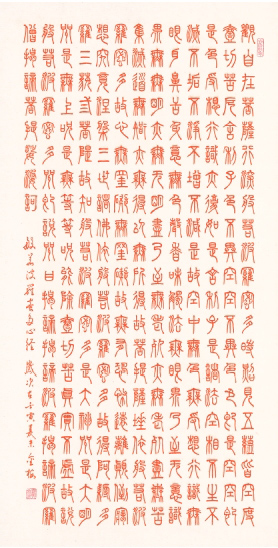 觀自在菩薩行深般若波羅蜜多時照見五蘊皆空度
一切苦厄舍利子色不異空空不異色色即是空空即
是色受想行識亦復如是舍利子是諸法空相不生不
滅不垢不淨不增不減是故空中無色無受想行識無
眼耳鼻舌身意無色聲香味觸法無眼界乃至無意識
界無無明亦無無明盡乃至無老死亦無老死盡無苦
集滅道無智亦無得以無所得故菩提薩埵依般若波
羅蜜多故心無罣礙無罣礙故無有恐怖遠離顛倒夢
想究竟涅槃三世諸佛依般若波羅蜜多故得阿耨多
羅三藐三菩提故知般若波羅蜜多是大神咒是大明
咒是無上咒是無等等咒能除一切苦真實不虛故說
般若波羅蜜多咒即說咒曰揭諦揭諦波羅揭諦波羅
僧揭諦菩提薩婆訶
般若波羅蜜多心經 歲次壬寅夏